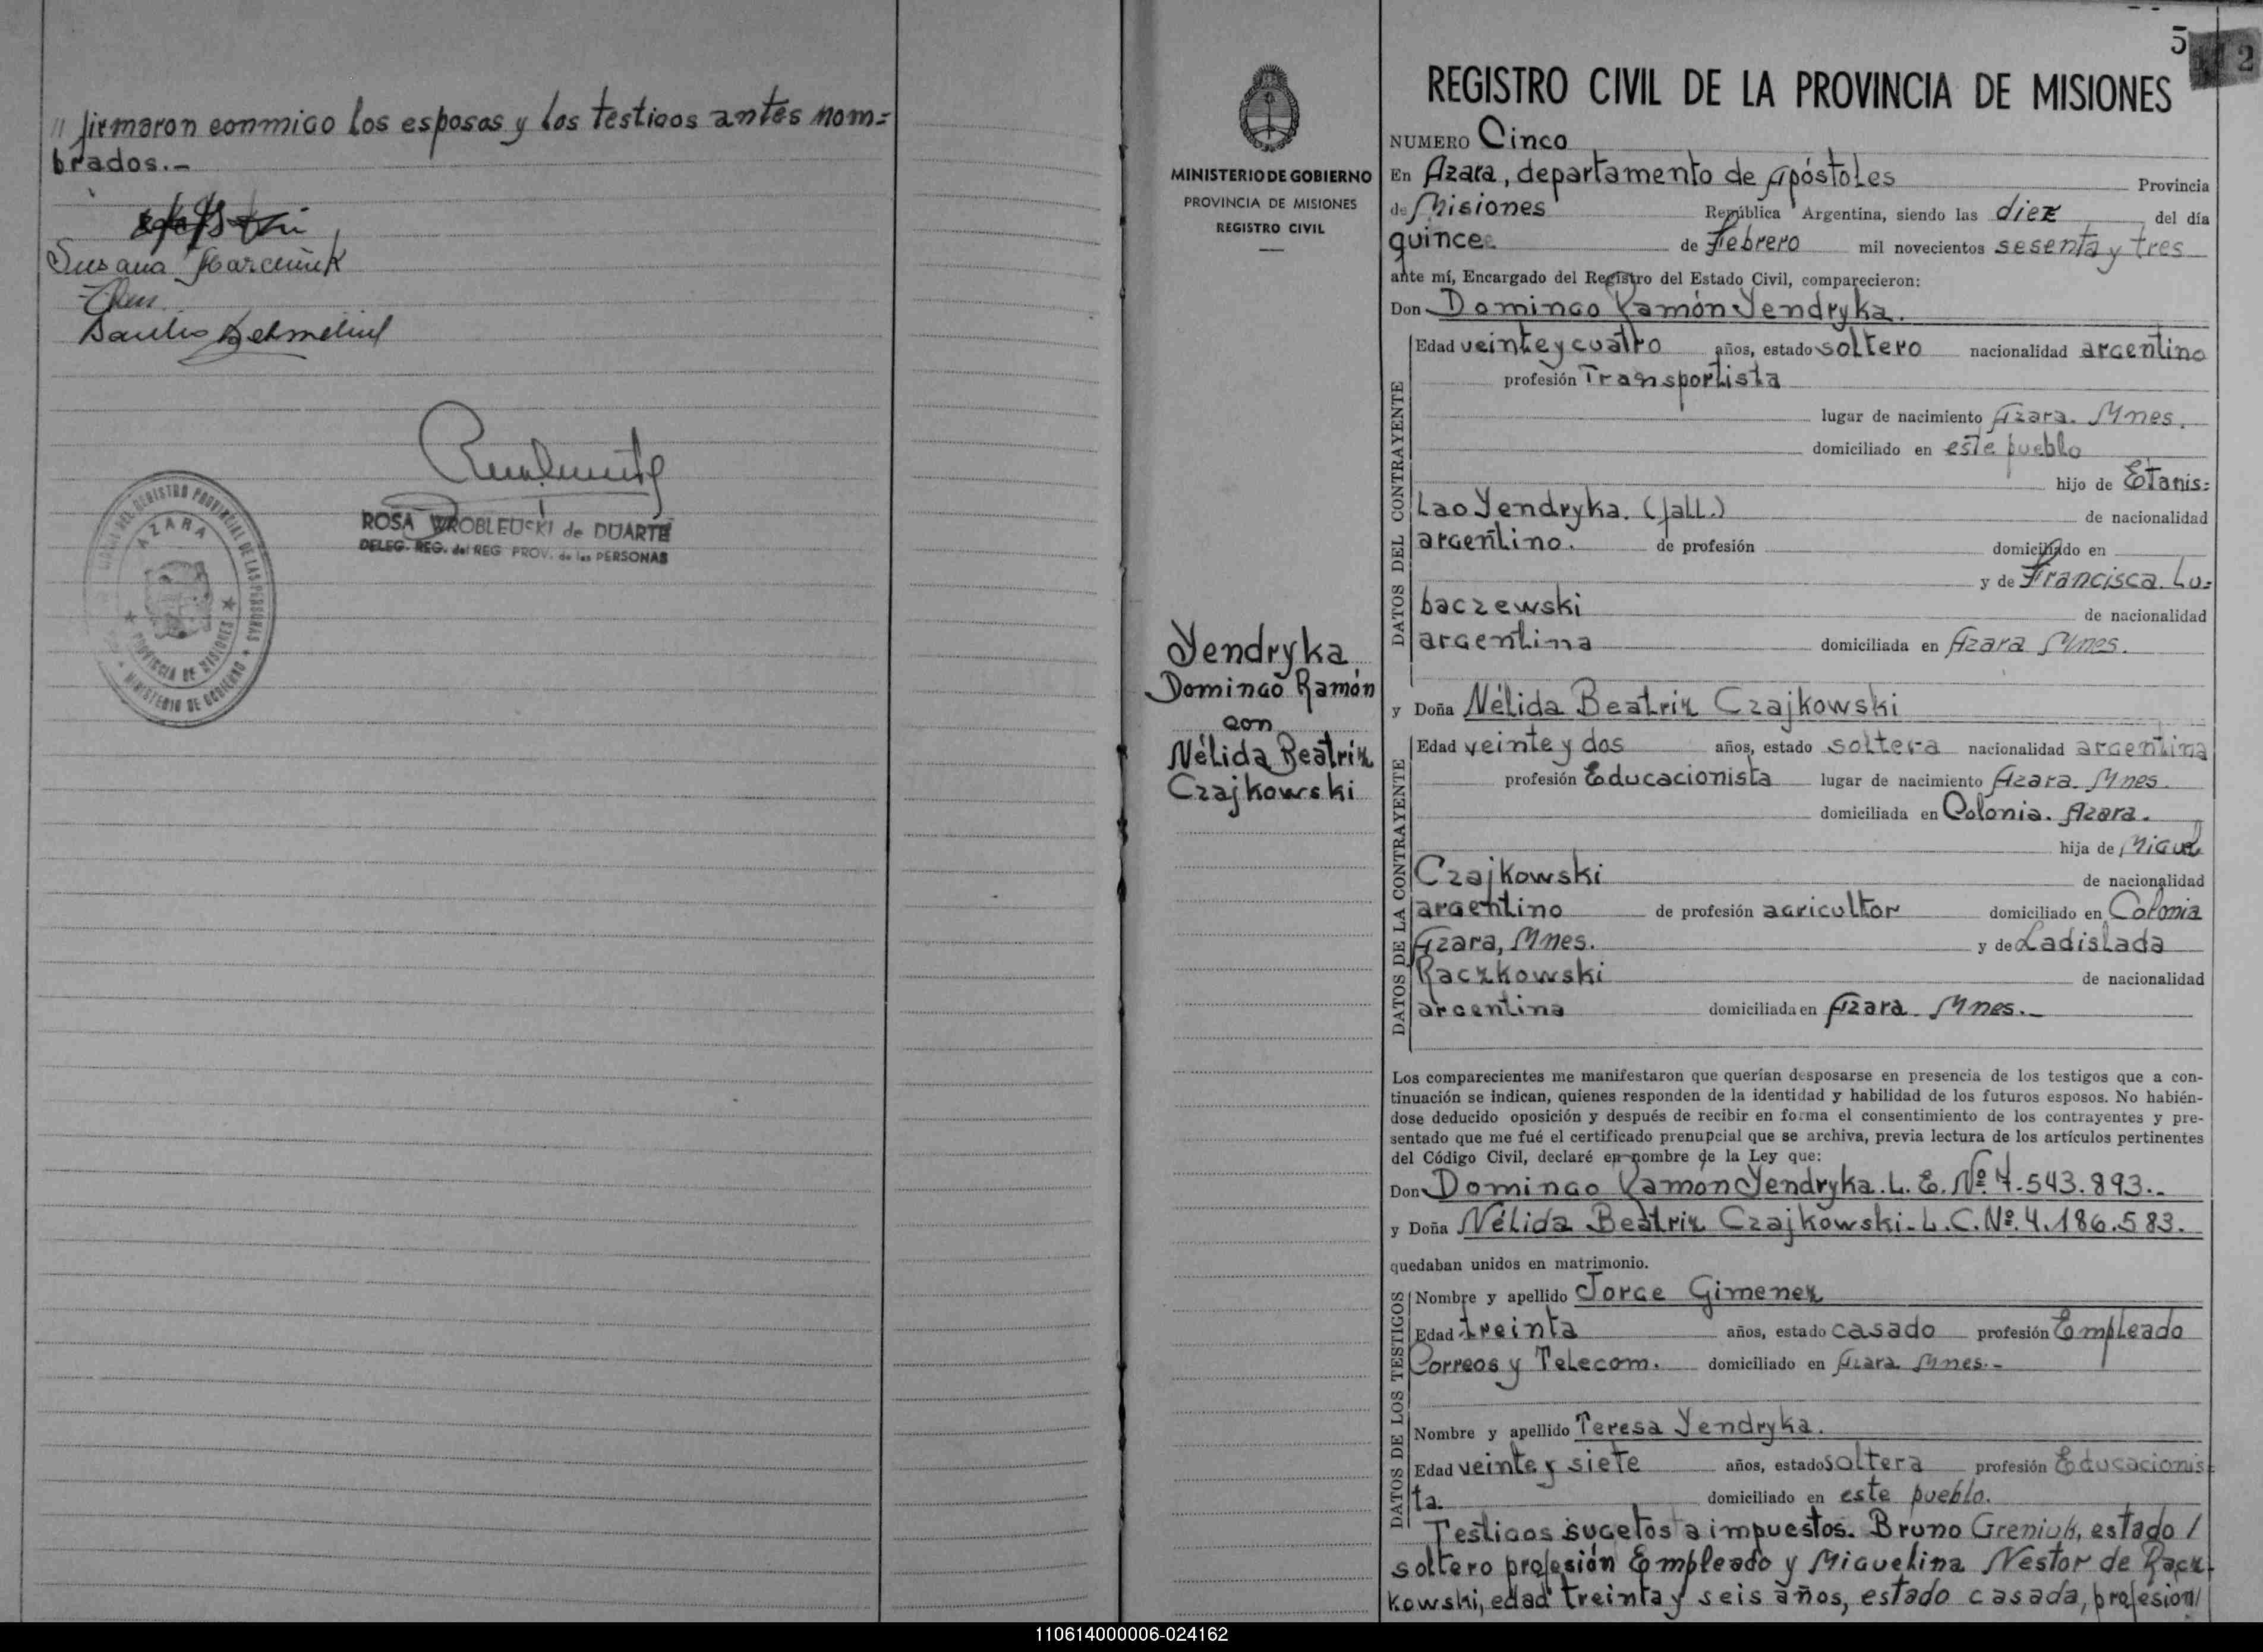 // firmaron conmigo los esposos y los testigos antes nom=
brados.-
Susana Marciniuk
ROSA WROBLEUSKI de DUARTE
DELEG. REG. del REG PROV. de las PERSONAS
REGISTRO PROVINCIAL DE LAS PERSONAS
AZARA
PROVINCIA DE MISIONES
MINISTERIO DE GOBIERNO
MINISTERIO DE GOBIERNO
PROVINCIA DE MISIONES
REGISTRO CIVIL
Yendryka
Domingo Ramón
con
Nélida Beatriz
Czajkowski
5
2
REGISTRO CIVIL DE LA PROVINCIA DE MISIONES
NUMERO Cinco
En Azara, departamento de Apóstoles Provincia
de Misiones República Argentina, siendo las diez del día
quince de Febrero mil novecientos sesenta y tres
ante mí, Encargado del Registro del Estado Civil, comparecieron:
Don Domingo Ramón Yendryka.
DATOS DEL CONTRAYENTE
Edad veinte y cuatro años, estado soltero nacionalidad argentino
profesión Transportista
lugar de nacimiento Azara. Mnes.
domiciliado en este pueblo
hijo de Etanis=
lao Yendryka. (fall.) de nacionalidad
argentino. de profesión domiciliado en
y de Francisca. Lu=
baczewski de nacionalidad
argentina domiciliada en Azara Mnes.
y Doña Nélida Beatriz Czajkowski
DATOS DE LA CONTRAYENTE
Edad veinte y dos años, estado soltera nacionalidad argentina
profesión Educacionista lugar de nacimiento Azara. Mnes.
domiciliada en Colonia. Azara.
hija de Miguel
Czajkowski de nacionalidad
argentino de profesión agricultor domiciliado en Colonia
Azara, Mnes. y de Ladislada
Raczkowski de nacionalidad
argentina domiciliada en Azara Mnes.-
Los comparecientes me manifestaron que querían desposarse en presencia de los testigos que a con-
tinuación se indican, quienes responden de la identidad y habilidad de los futuros esposos. No habién-
dose deducido oposición y después de recibir en forma el consentimiento de los contrayentes y pre-
sentado que me fué el certificado prenupcial que se archiva, previa lectura de los artículos pertinentes
del Código Civil, declaré en nombre de la Ley que:
Don Domingo Ramon Yendryka. L. E. Nº 7.543.893.-
y Doña Nélida Beatriz Czajkowski- L. C. Nº. 4.186.583.
quedaban unidos en matrimonio.
DATOS DE LOS TESTIGOS
Nombre y apellido Jorge Gimenez
Edad treinta años, estado casado profesión Empleado
Correos y Telecom. domiciliado en Azara Mnes.-
Nombre y apellido Teresa Yendryka.
Edad veinte y siete años, estado soltera profesión Educacionis=
ta. domiciliado en este pueblo.
Testigos sugetos a impuestos. Bruno Greniuk, estado /
soltero profesión Empleado y Miguelina Nestor de Racz-
kowski, edad treinta y seis años, estado casada, profesión/
110614000006-024162